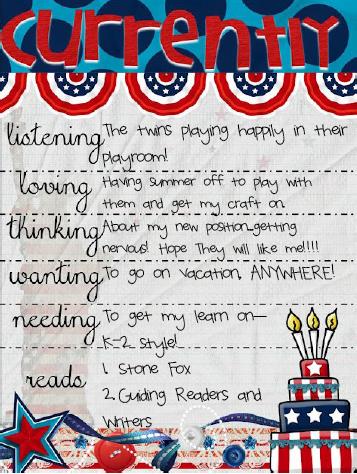 currently
listening The twins playing happily in their
playroom!
loving Having summer off to play with
them and get my craft on.
thinking About my new position...getting
nervous! Hope They will like me!!!!
wanting To go on vacation, ANYWHERE!
needing To get my learn on—
K-2 style!
reads 1. Stone Fox
2. Guiding Readers and
Writers